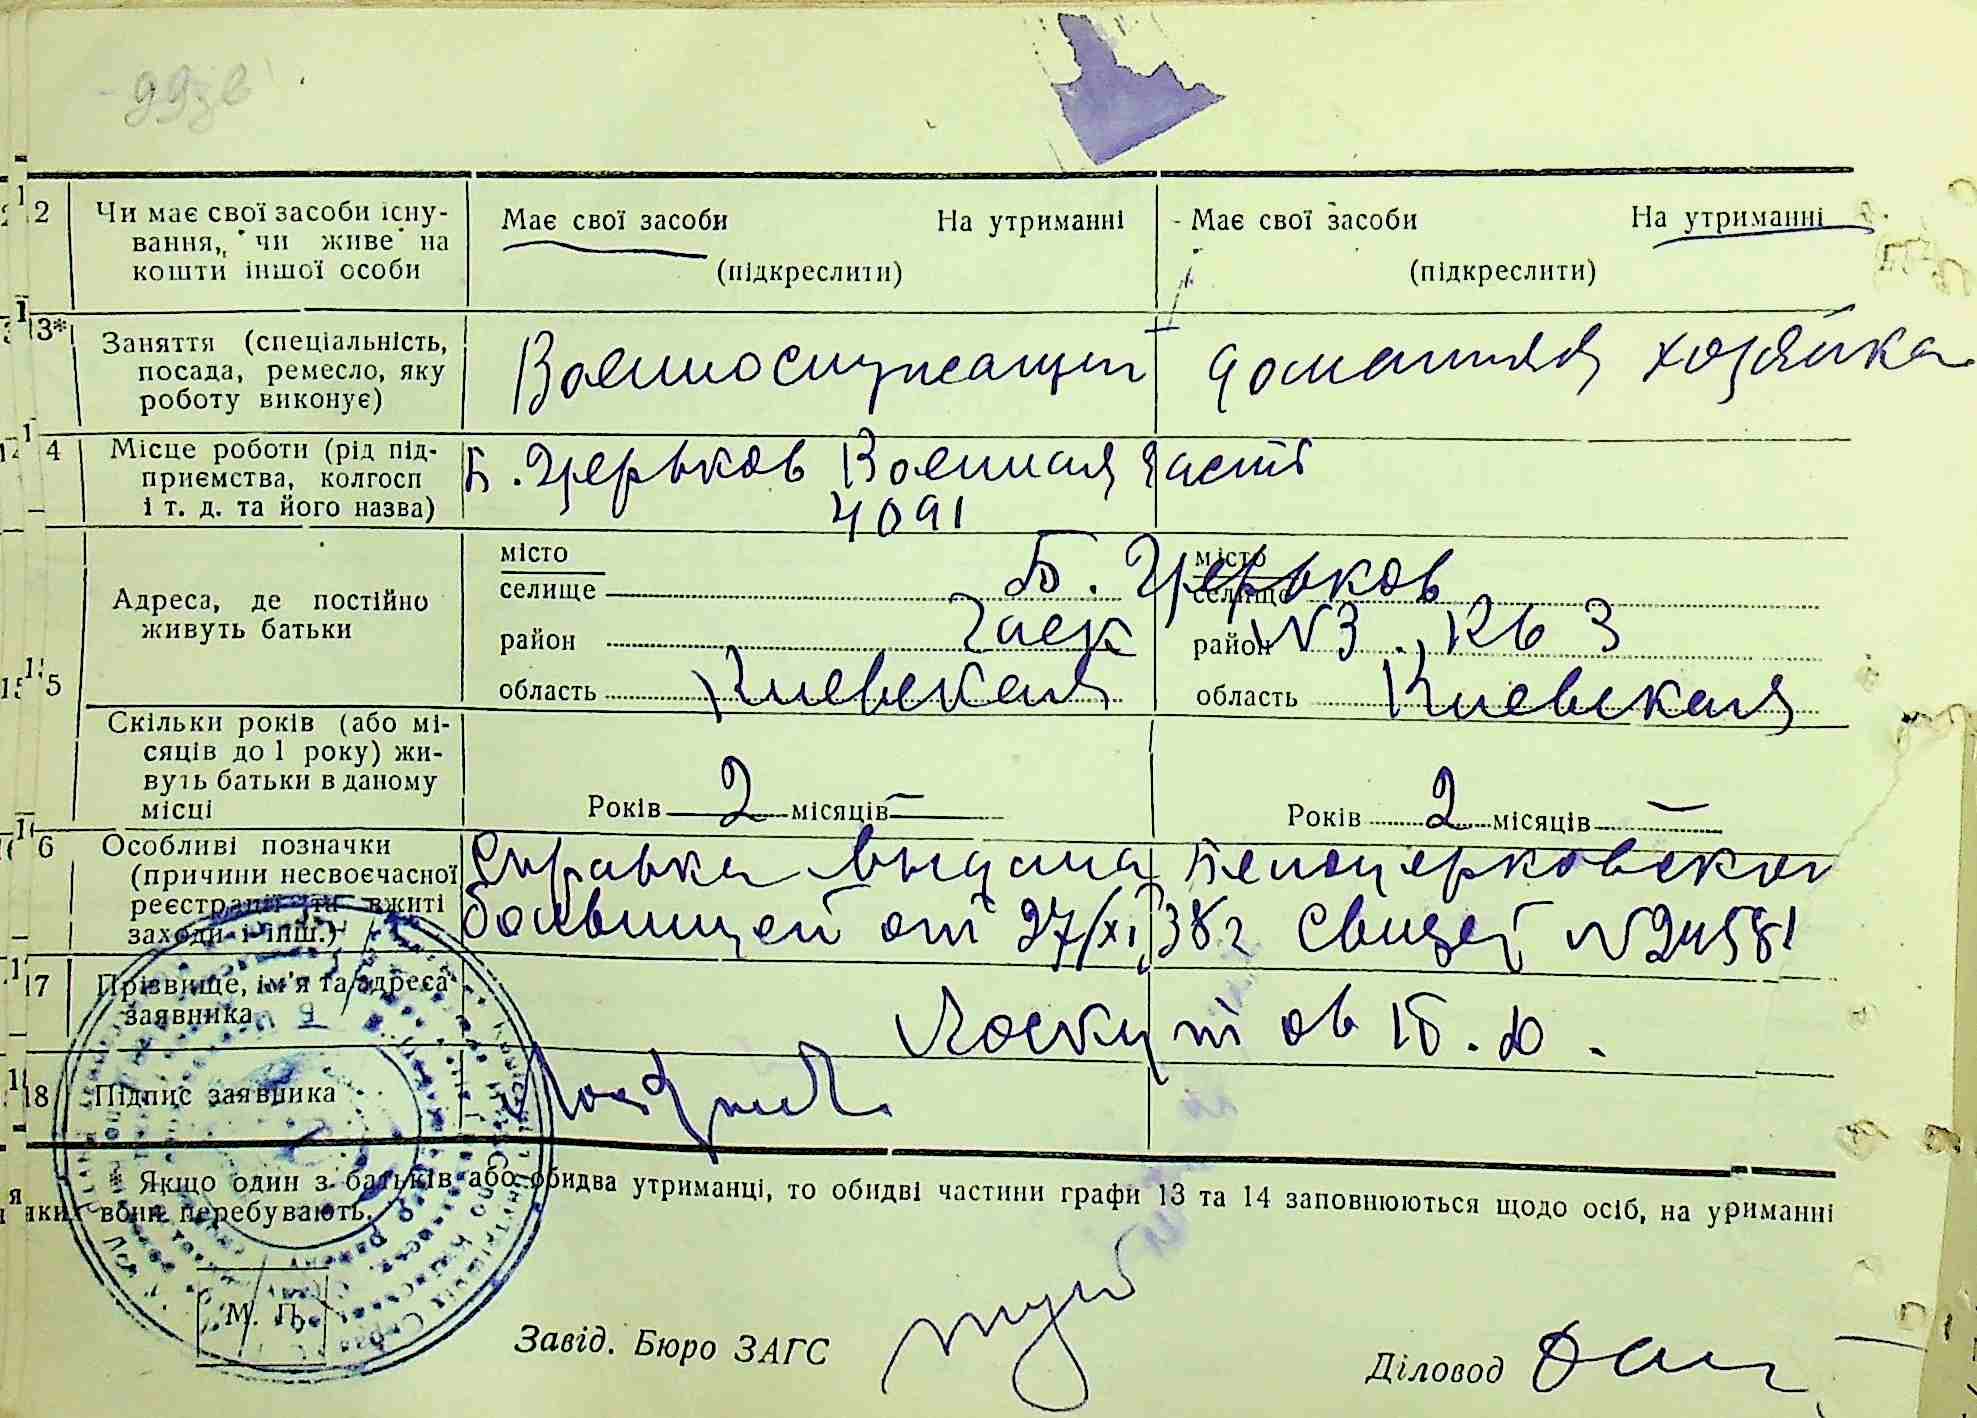 2 Чи має свої засоби існу-
вання, чи живе на
кошти іншої особи
Має свої засоби На утриманні
(підкреслити)
Має свої засоби На утриманні
(підкреслити)
13* Заняття (спеціальність,
посада, ремесло, яку
роботу виконує)
Военнослужащий
домашняя хозяйка
4 Місце роботи (рід під-
приємства, колгосп
і т. д. та його назва)
Б. Церьков Военная часть
4091
15 Адреса, де постійно
живуть батьки
місто
селище Б. Церьков
район
область Киевская
місто
селище
район №3 . Кв 3
область Киевская
Скільки років (або мі-
сяців до 1 року) жи-
вуть батьки в даному
місці
Років 2 місяців —
Років 2 місяців —
6 Особливі позначки
(причини несвоєчасної
реєстрації та вжиті
заходи і інш.)
Справка выдана Белоцерковской
больницей от 27/XI 38г №24581
17 Прізвище, ім'я та адреса
заявника
Лоскутов
18 Підпис заявника
Якщо один з батьків або обидва утриманці, то обидві частини графи 13 та 14 заповнюються щодо осіб, на уриманні
яких вони перебувають.
М. П.
Завід. Бюро ЗАГС
Діловод